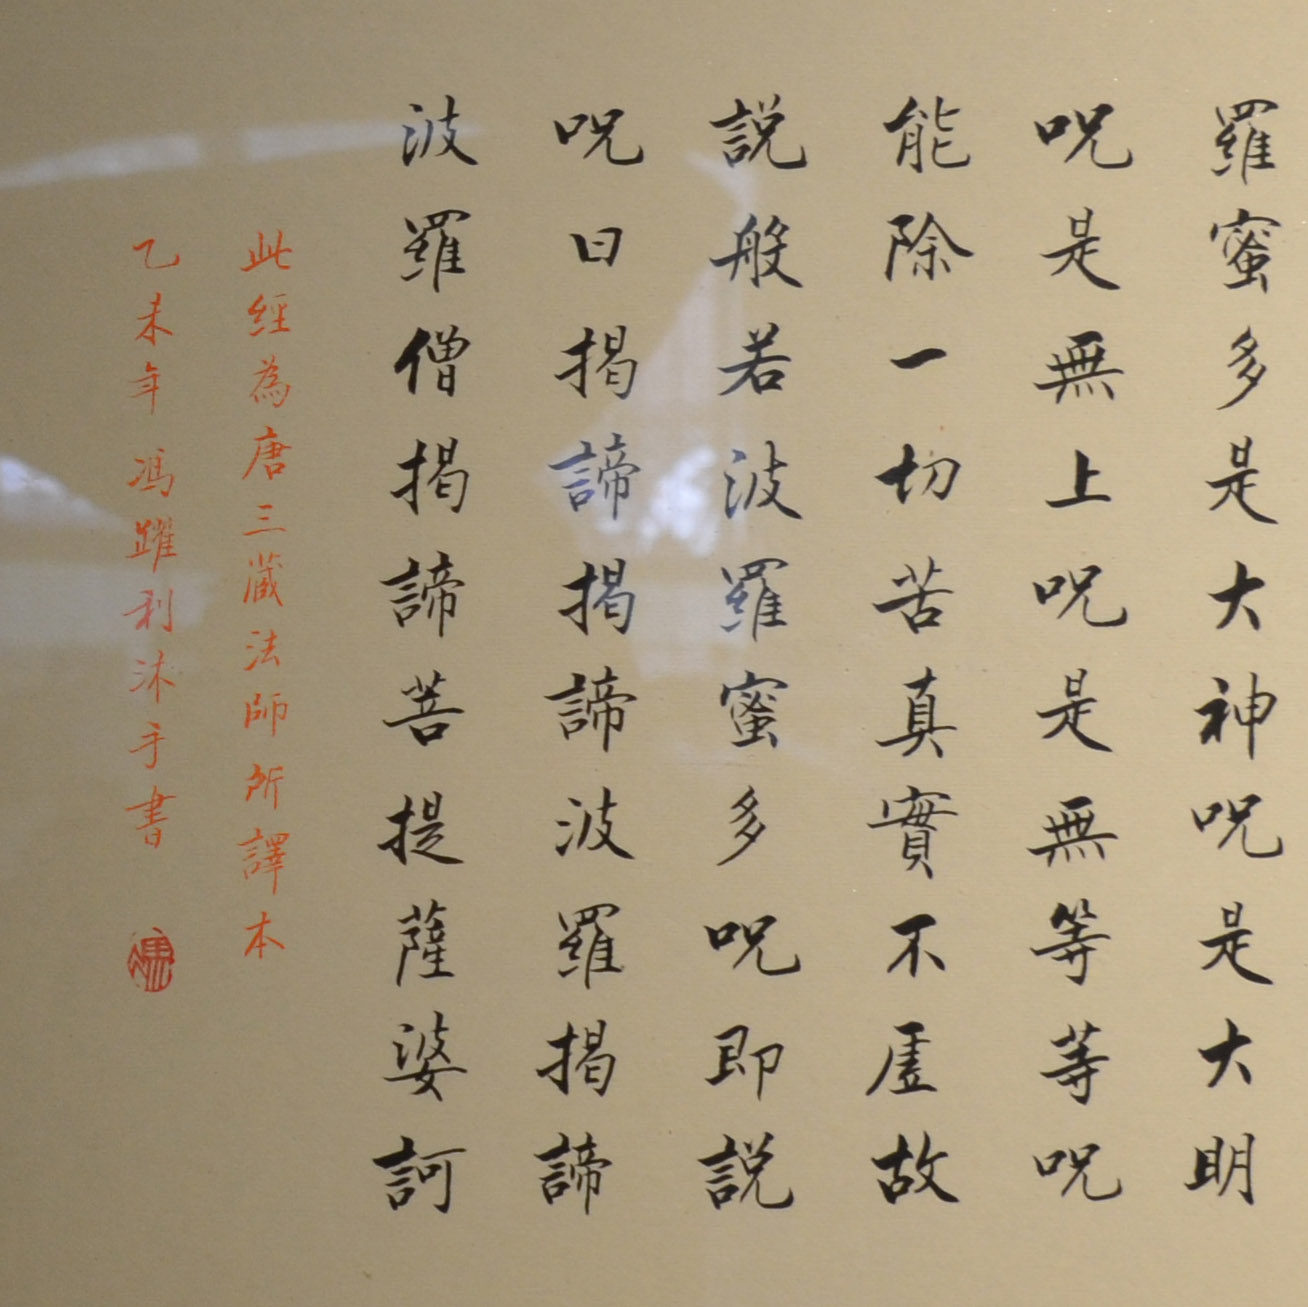 羅蜜多是大神呪是大明
呪是無上呪是無等等呪
能除一切苦真實不虛故
説般若波羅蜜多呪即説
呪曰揭諦揭諦波羅揭諦
波羅僧揭諦菩提薩婆訶
此經為唐三藏法師所譯本
乙未年馮躍利沐手書